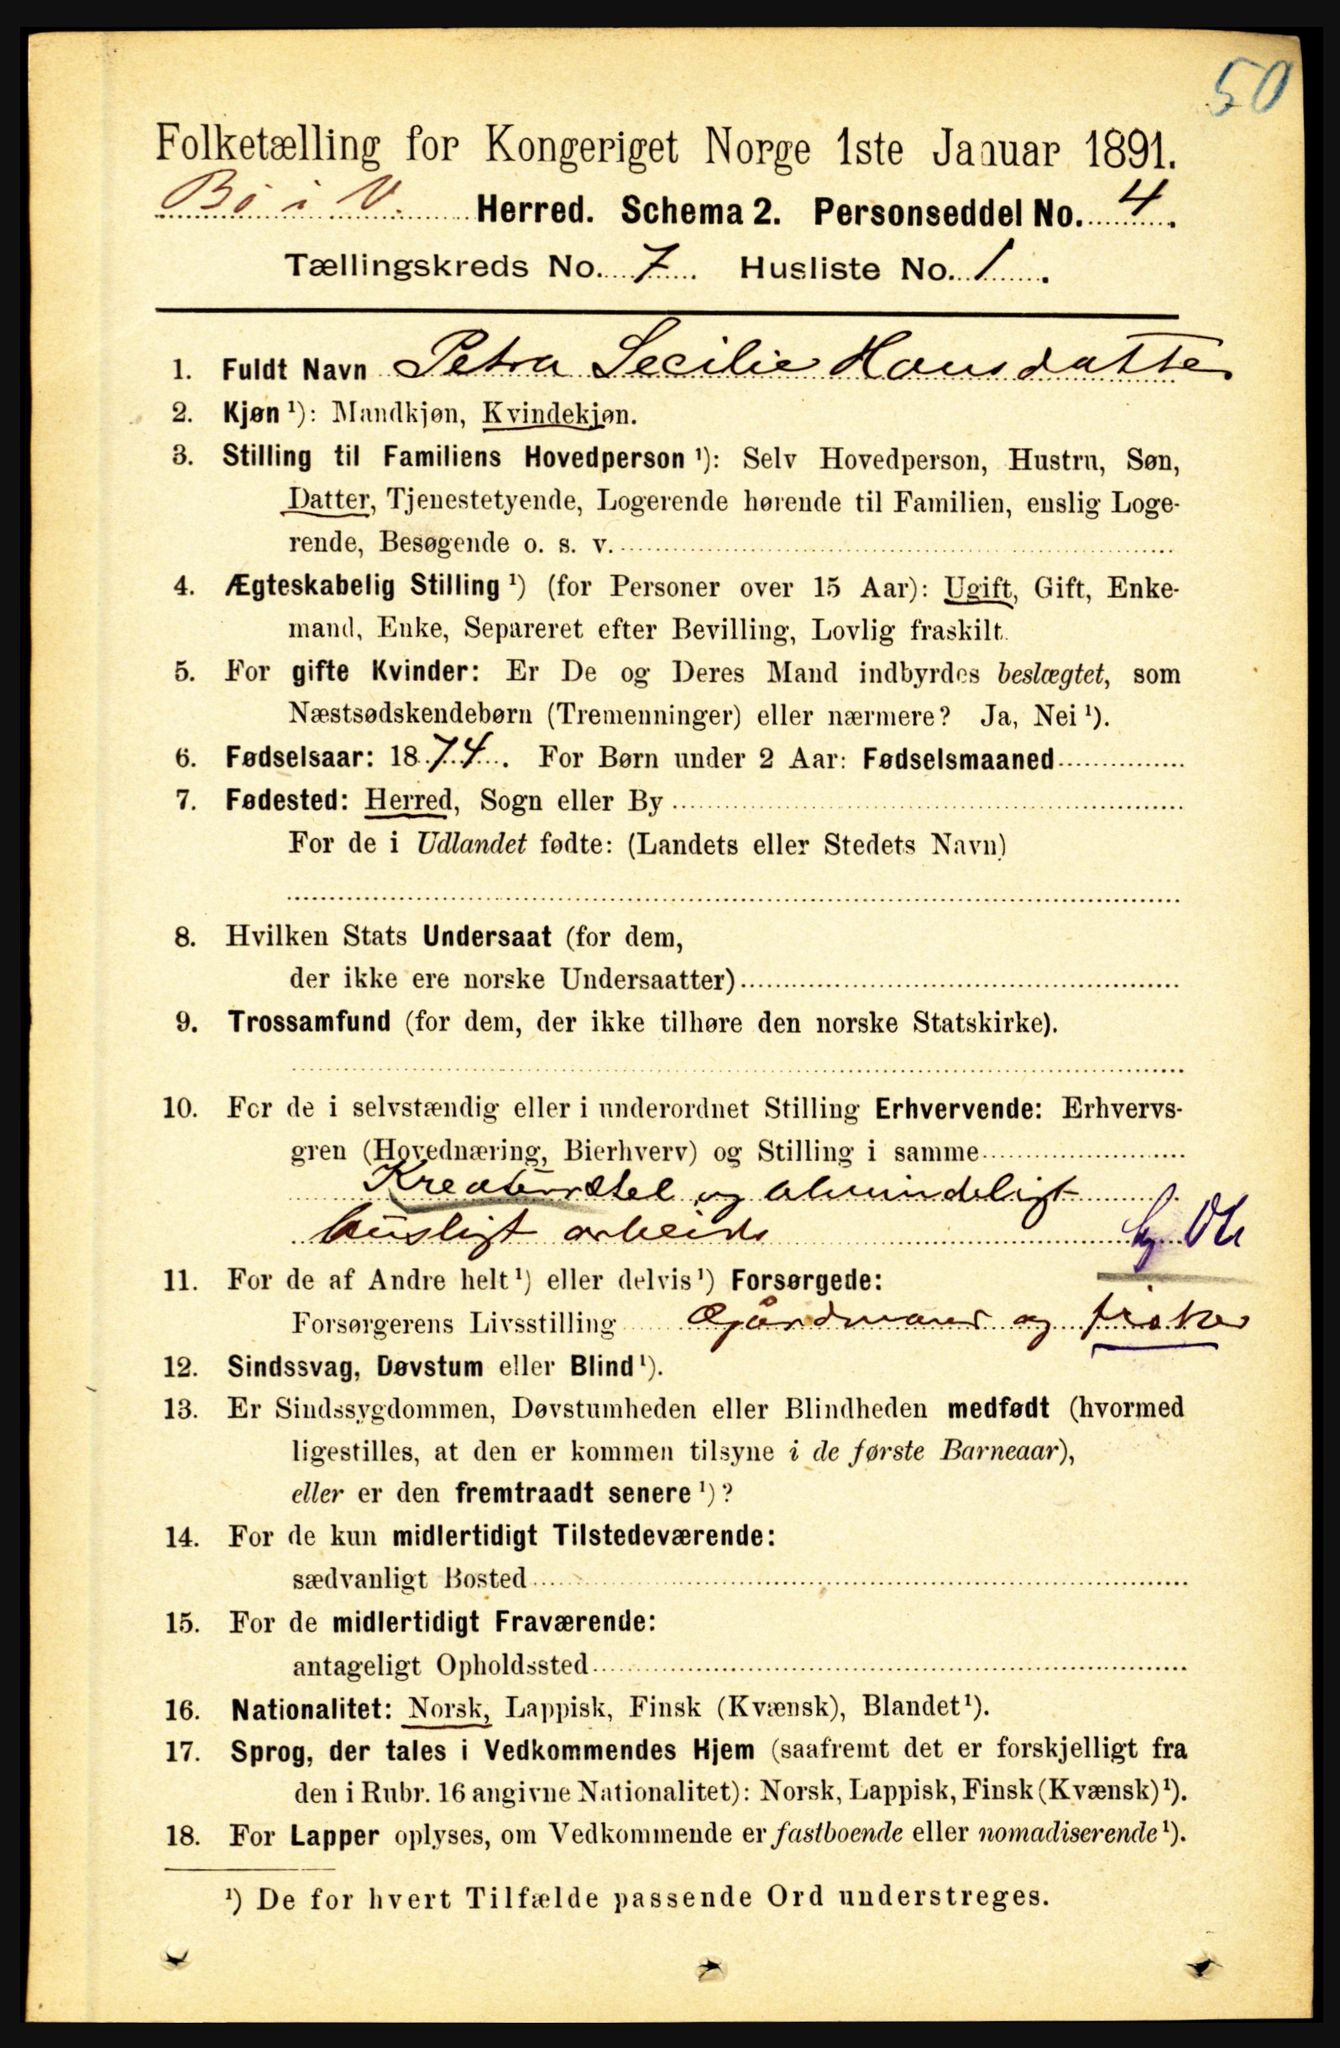 50
Folketælling for Kongeriget Norge 1ste Januar 1891.
Bø i V. Herred. Schema 2. Personseddel No. 4.
Tællingskreds No. 7. Husliste No. 1.
1. Fuldt Navn Petra Secilie Hansdatter
2. Kjøn ¹): Mandkjøn, Kvindekjøn.
3. Stilling til Familiens Hovedperson ¹): Selv Hovedperson, Hustru, Søn,
Datter, Tjenestetyende, Logerende hørende til Familien, enslig Loge-
rende, Besøgende o. s. v.
4. Ægteskabelig Stilling ¹) (for Personer over 15 Aar): Ugift, Gift, Enke-
mand, Enke, Separeret efter Bevilling, Lovlig fraskilt.
5. For gifte Kvinder: Er De og Deres Mand indbyrdes beslægtet, som
Næstsødskendebørn (Tremenninger) eller nærmere? Ja, Nei ¹).
6. Fødselsaar: 1874. For Børn under 2 Aar: Fødselsmaaned
7. Fødested: Herred, Sogn eller By
For de i Udlandet fødte: (Landets eller Stedets Navn)
8. Hvilken Stats Undersaat (for dem,
der ikke ere norske Undersaatter)
9. Trossamfund (for dem, der ikke tilhøre den norske Statskirke).
10. For de i selvstændig eller i underordnet Stilling Erhvervende: Erhvervs-
gren (Hovednæring, Bierhverv) og Stilling i samme
Kreaturstel og almindeligt
husligt arbeide
11. For de af Andre helt ¹) eller delvis ¹) Forsørgede:
Forsørgerens Livsstilling Gårdmand og fisker
12. Sindssvag, Døvstum eller Blind ¹).
13. Er Sindssygdommen, Døvstumheden eller Blindheden medfødt (hvormed
ligestilles, at den er kommen tilsyne i de første Barneaar),
eller er den fremtraadt senere ¹)?
14. For de kun midlertidigt Tilstedeværende:
sædvanligt Bosted
15. For de midlertidigt Fraværende:
antageligt Opholdssted
16. Nationalitet: Norsk, Lappisk, Finsk (Kvænsk), Blandet ¹).
17. Sprog, der tales i Vedkommendes Hjem (saafremt det er forskjelligt fra
den i Rubr. 16 angivne Nationalitet): Norsk, Lappisk, Finsk (Kvænsk) ¹).
18. For Lapper oplyses, om Vedkommende er fastboende eller nomadiserende ¹).
¹) De for hvert Tilfælde passende Ord understreges.